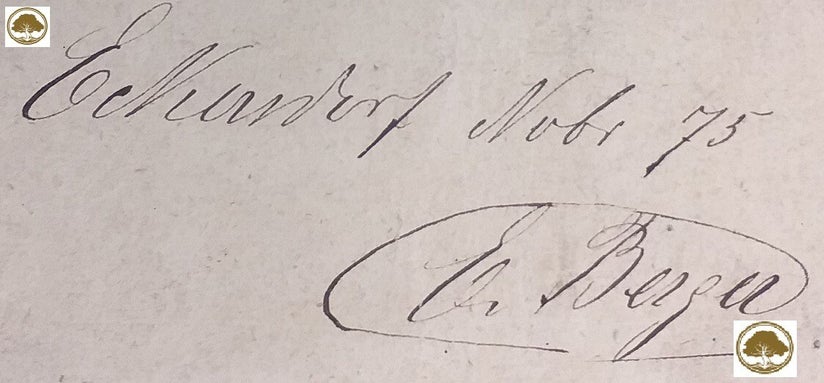 Eckersdorf Nobr 75
E. Berger